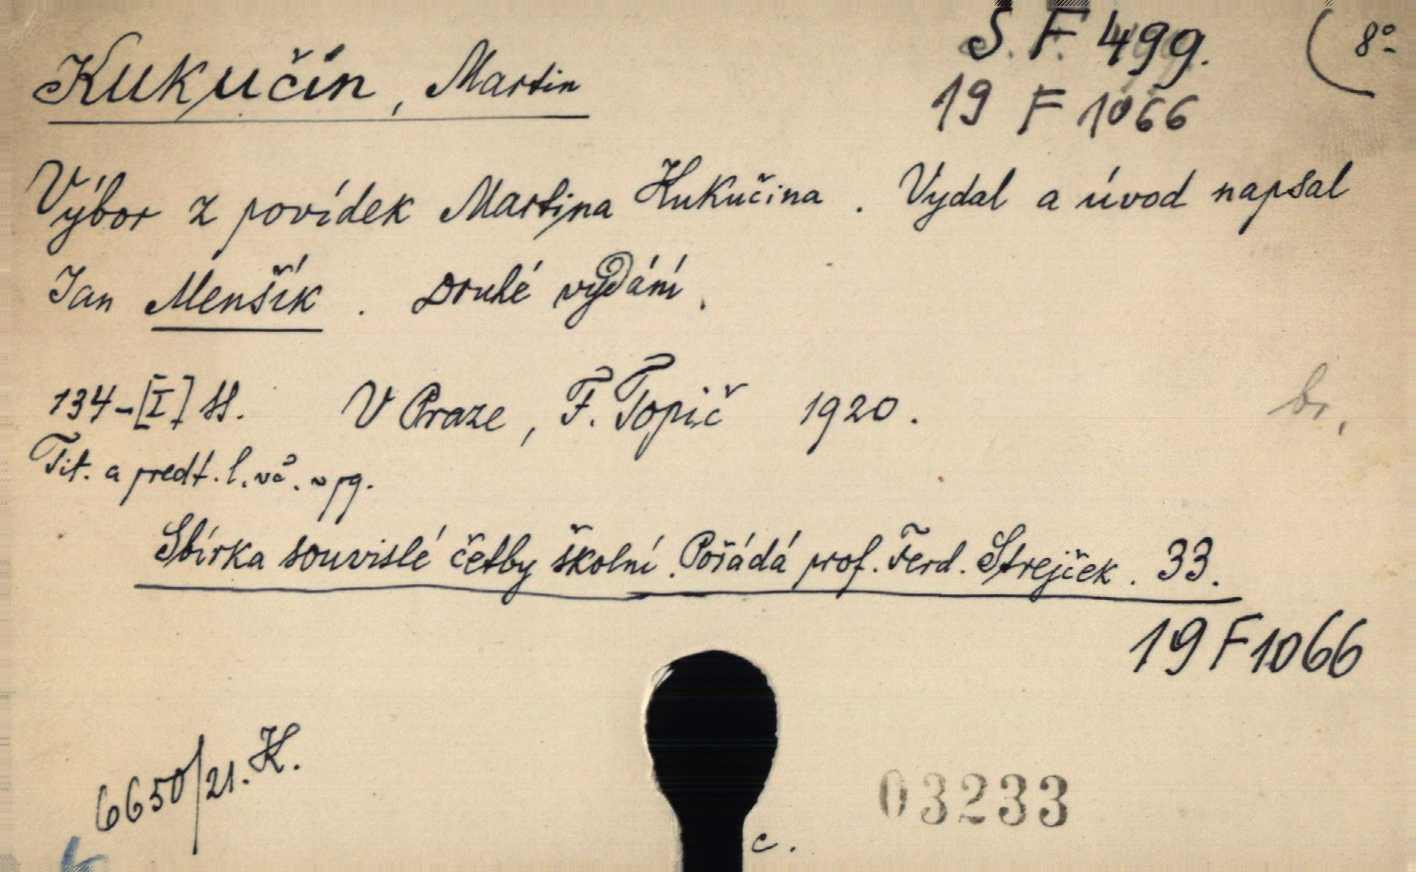 S. F 499.
(8°
Kukučín, Martin
19 F 1066
Výbor z povídek Martina Kukučina. Vydal a úvod napsal
Jan Menšík. Druhé vydání.
134-[I] ss. V Praze, F. Topič 1920.
br.
Tit. a předt. l. vč. v pg.
Sbírka souvislé četby školní. Pořádá prof. Ferd. Strejček. 33.
19 F 1066
6650/21. K.
03233
c.